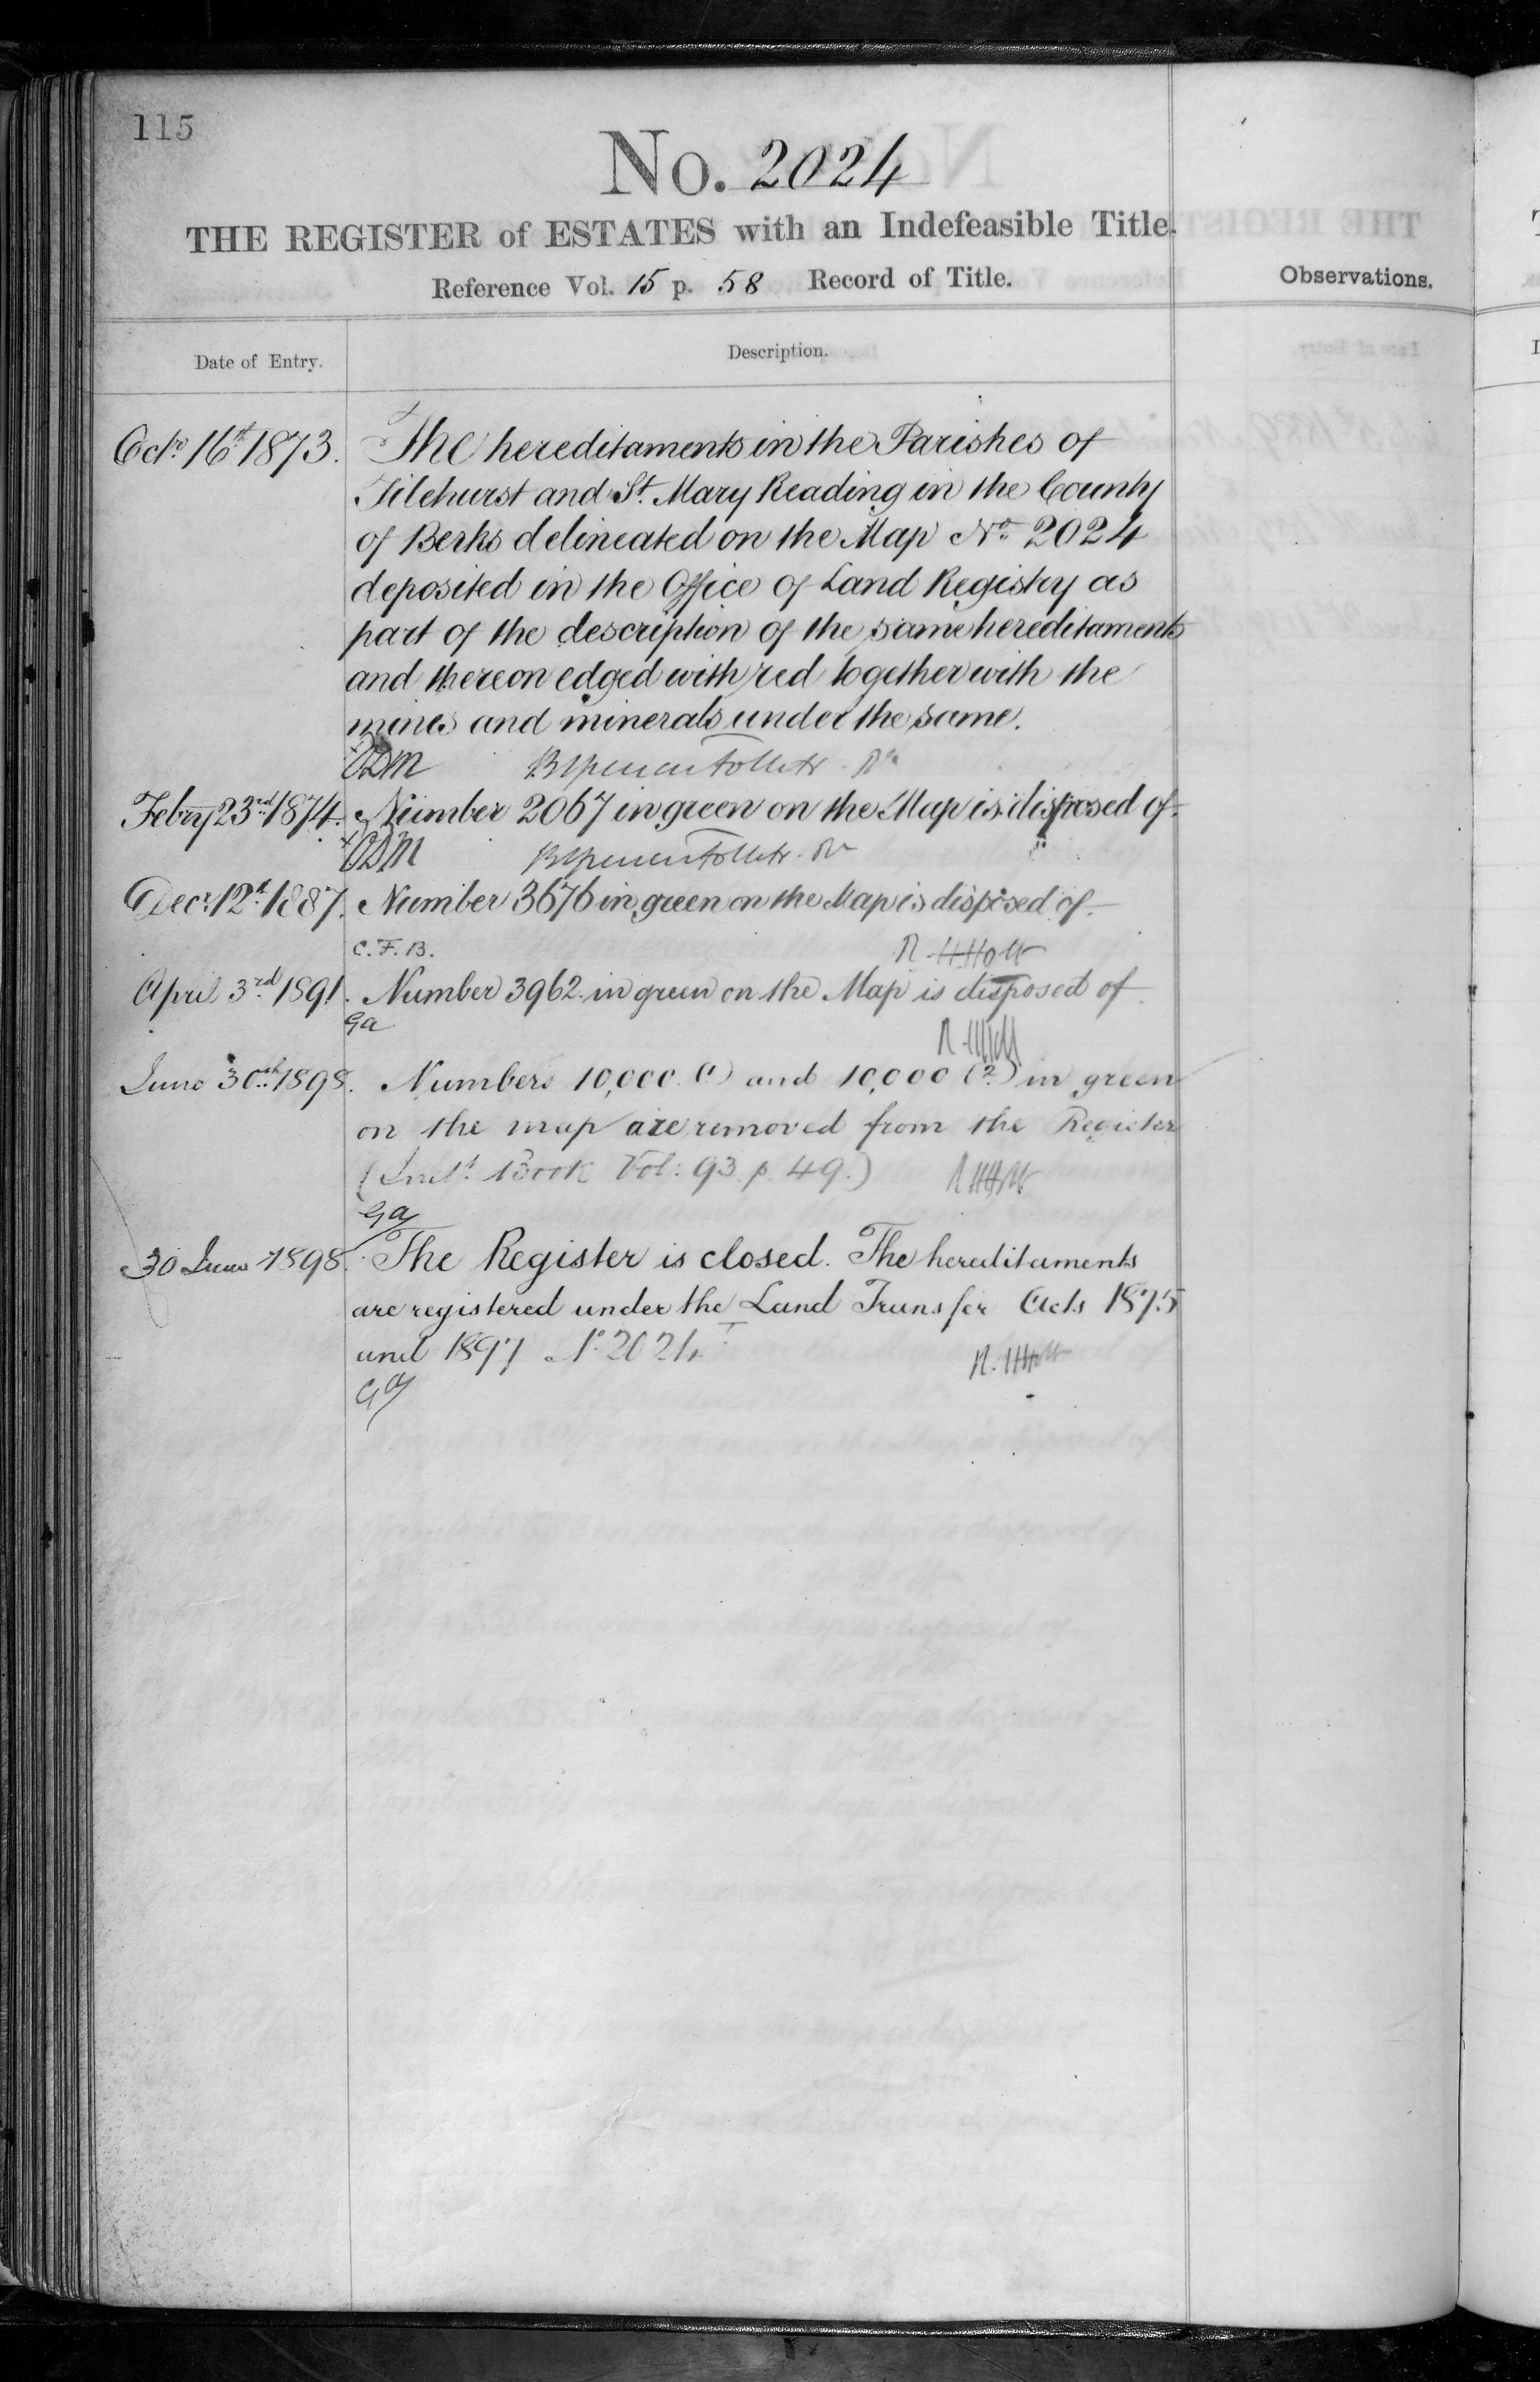 115
No. 2024
THE REGISTER of ESTATES with an Indefeasible Title.
Reference Vol. 15 p. 58 Record of Title.
Observations.
Date of Entry.
Description.
Octr 16th 1873. The hereditaments in the Parishes of
Tilehurst and St. Mary Reading in the County
of Berks delineated on the Map No 2024
deposited in the Office of Land Registry as
part of the description of the same hereditaments
and thereon edged with red together with the
mines and minerals under the same.
Brent Spencer Follett Rr
Febry 23rd 1874. Number 2067 in green on the Map is disposed of.
Brent Spencer Follett Rr
Decr 12th 1887. Number 3676 in green on the Map is disposed of.
C.F.B. R. H. Holt
April 3rd 1891. Number 3962 in green on the Map is disposed of.
Ga
R. H. Holt
June 30th 1898. Numbers 10,000 (1) and 10,000 (2) in green
on the map are removed from the Register
(Inst. Book Vol: 93 p. 49.) R. H. Holt
Ga
30 June 1898. The Register is closed. The hereditaments
are registered under the Land Transfer Acts 1875
and 1897 No 2024 I. R. H. Holt
Ga